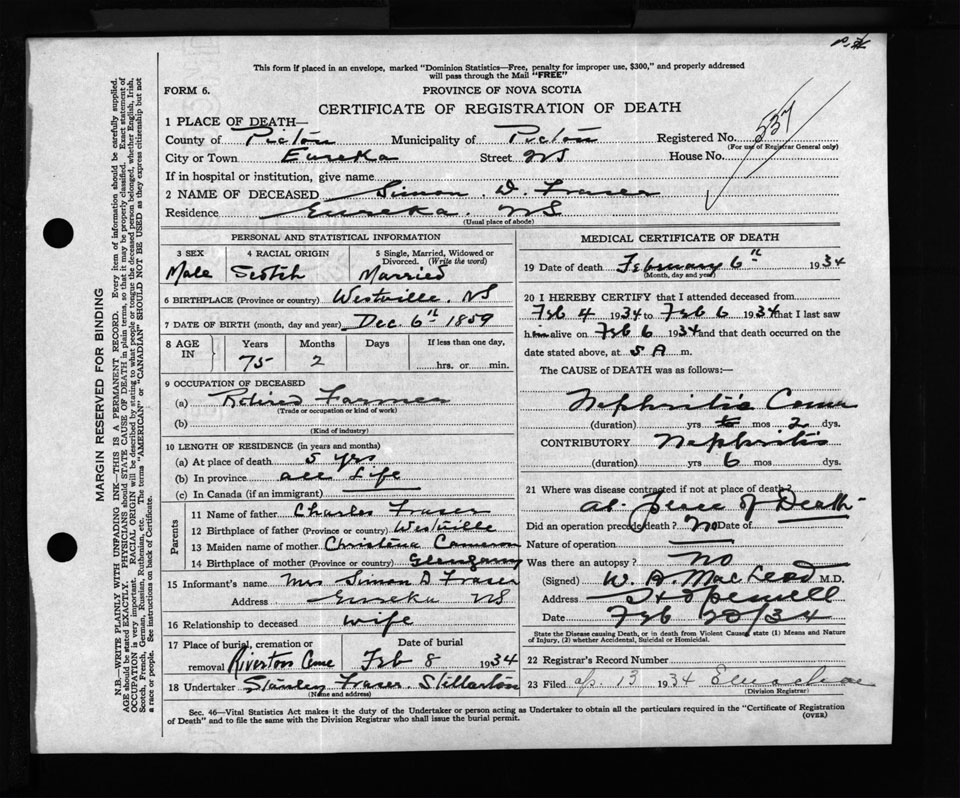 This form if placed in an envelope, marked "Dominion Statistics—Free, penalty for improper use, $300," and properly addressed
will pass through the Mail "FREE"
FORM 6. PROVINCE OF NOVA SCOTIA
CERTIFICATE OF REGISTRATION OF DEATH
1 PLACE OF DEATH—
County of Pictou Municipality of Pictou Registered No. 537
(For use of Registrar General only)
City or Town Eureka Street NS House No.
If in hospital or institution, give name
2 NAME OF DECEASED Simon D. Fraser
Residence Eureka. NS
(Usual place of abode)
PERSONAL AND STATISTICAL INFORMATION
3 SEX 4 RACIAL ORIGIN 5 Single, Married, Widowed or
Divorced. (Write the word)
Male Scotch Married
6 BIRTHPLACE (Province or country) Westville. NS
7 DATE OF BIRTH (month, day and year) Dec. 6th 1859
8 AGE IN Years Months Days If less than one day,
75 2 hrs. or min.
9 OCCUPATION OF DECEASED
(a) Retired Farmer
(Trade or occupation or kind of work)
(b)
(Kind of industry)
10 LENGTH OF RESIDENCE (in years and months)
(a) At place of death 5 yrs
(b) In province all Life
(c) In Canada (if an immigrant)
Parents
11 Name of father Charles Fraser
12 Birthplace of father (Province or country) Westville
13 Maiden name of mother Christena Cameron
14 Birthplace of mother (Province or country) Glengarry
15 Informant's name Mrs Simon D Fraser
Address Eureka NS
16 Relationship to deceased wife
17 Place of burial, cremation or Date of burial
removal Riverton Ceme Feb 8 1934
18 Undertaker Stanley Fraser Stellarton
(Name and address)
MEDICAL CERTIFICATE OF DEATH
19 Date of death February 6th 1934
(Month, day and year)
20 I HEREBY CERTIFY that I attended deceased from
Feb 4 1934 to Feb 6 1934 that I last saw
him alive on Feb 6 1934 and that death occurred on
date stated above, at 5 A m.
The CAUSE of DEATH was as follows:—
Nephritis Coma
(duration) yrs mos 2 dys.
CONTRIBUTORY Nephritis
(duration) yrs 6 mos dys.
21 Where was disease contracted if not at place of death?
at place of Death
Did an operation precede death? No Date of
Nature of operation
Was there an autopsy? NO
(Signed) W. A. MacLeod M.D.
Address Hopewell
Date Feb 20/34
State the Disease causing Death, or in death from Violent Causes, state (1) Means and Nature
of Injury, (2) whether Accidental, Suicidal or Homicidal.
22 Registrar's Record Number
23 Filed Ap. 13 1934
(Division Registrar)
Sec. 46—Vital Statistics Act makes it the duty of the Undertaker or person acting as Undertaker to obtain all the particulars required in the "Certificate of Registration
of Death" and to file the same with the Division Registrar who shall issue the burial permit. (OVER)
MARGIN RESERVED FOR BINDING
N.B.—WRITE PLAINLY WITH UNFADING INK—THIS IS A PERMANENT RECORD. Every item of information should be carefully supplied.
AGE should be stated EXACTLY. PHYSICIANS should STATE CAUSE OF DEATH in plain terms, so that it may be properly classified. Exact statement of
OCCUPATION is very important. RACIAL ORIGIN will be described by stating to what people or tongue the deceased person belonged, whether English, Irish,
Scotch, French, German, Russian, Ruthenian, etc. The terms "AMERICAN" or "CANADIAN" SHOULD NOT BE USED as they express citizenship but not
a race or people. See instructions on back of Certificate.